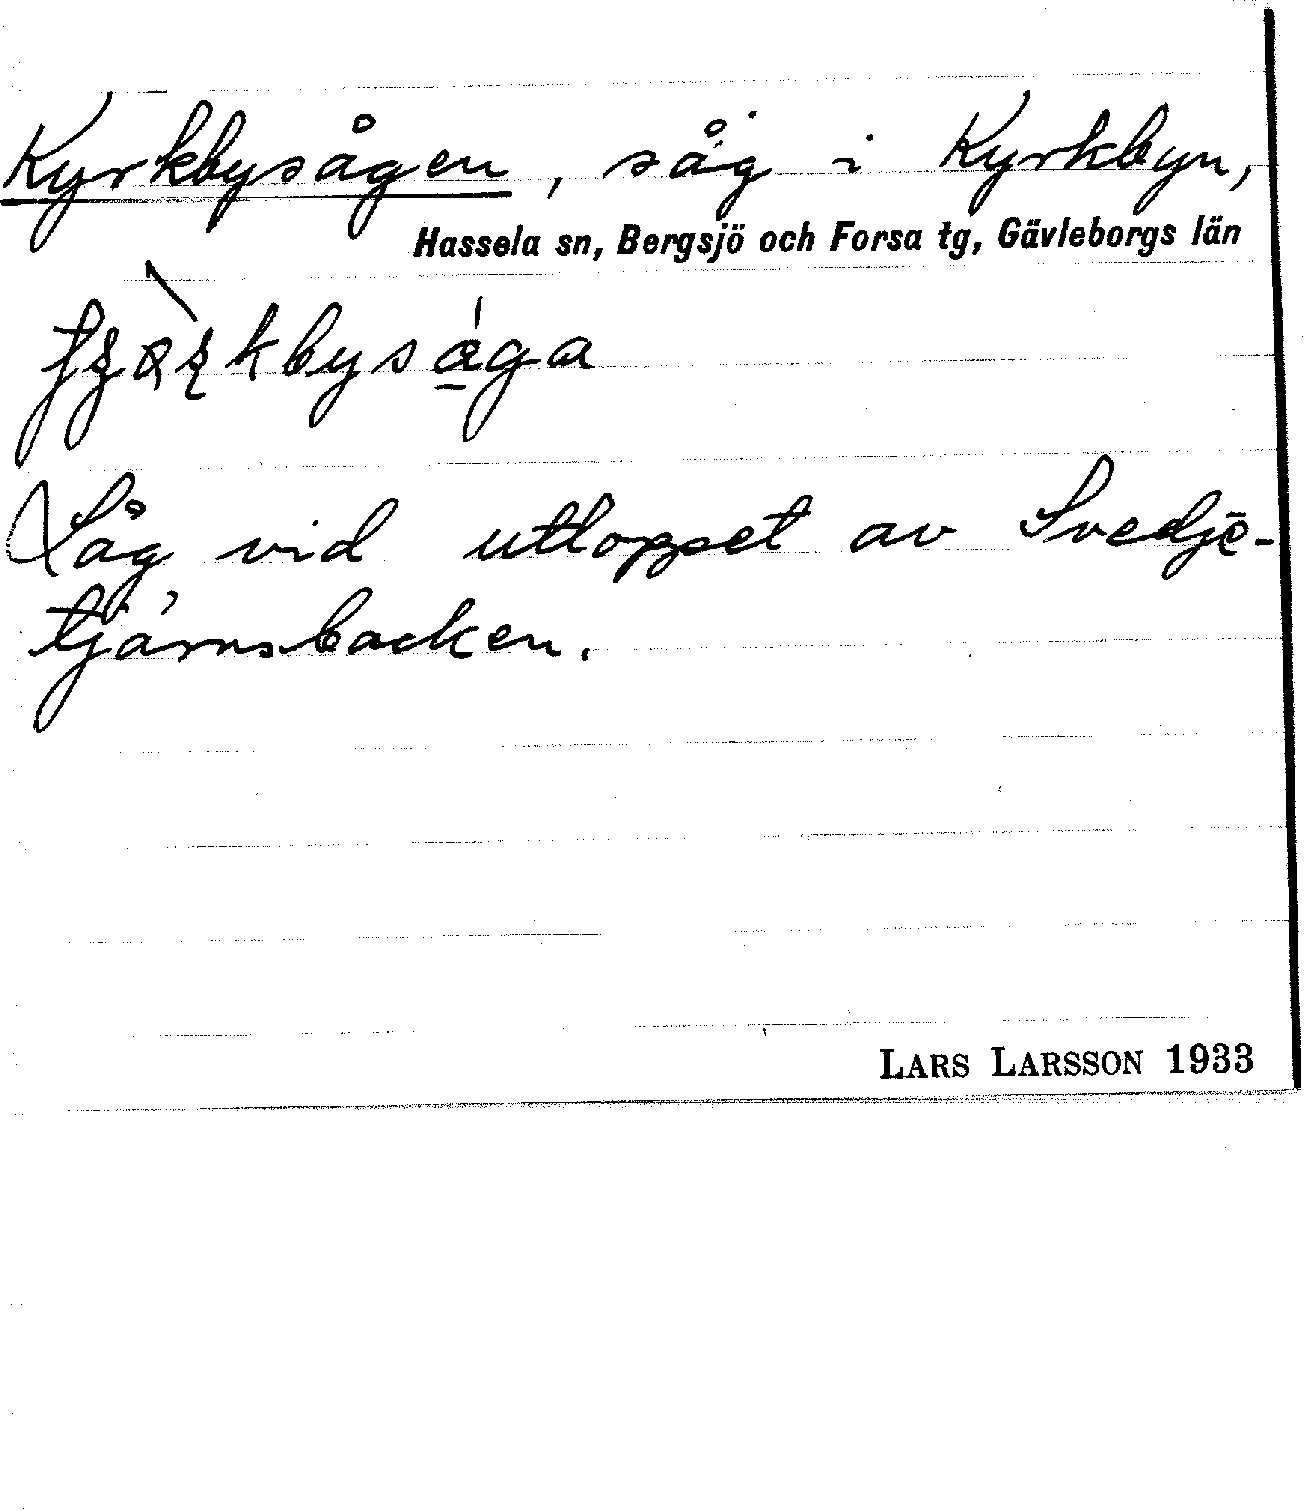 Kyrkbysågen, såg i Kyrkbyn,
Hassela sn, Bergsjö och Forsa tg, Gävleborgs län
Låg vid utloppet av Svedje-
tjärnsbacken.
LARS LARSSON 1933